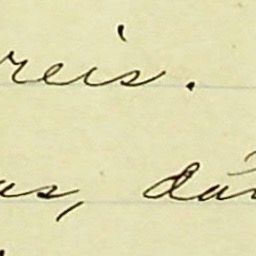 reis.
as, da